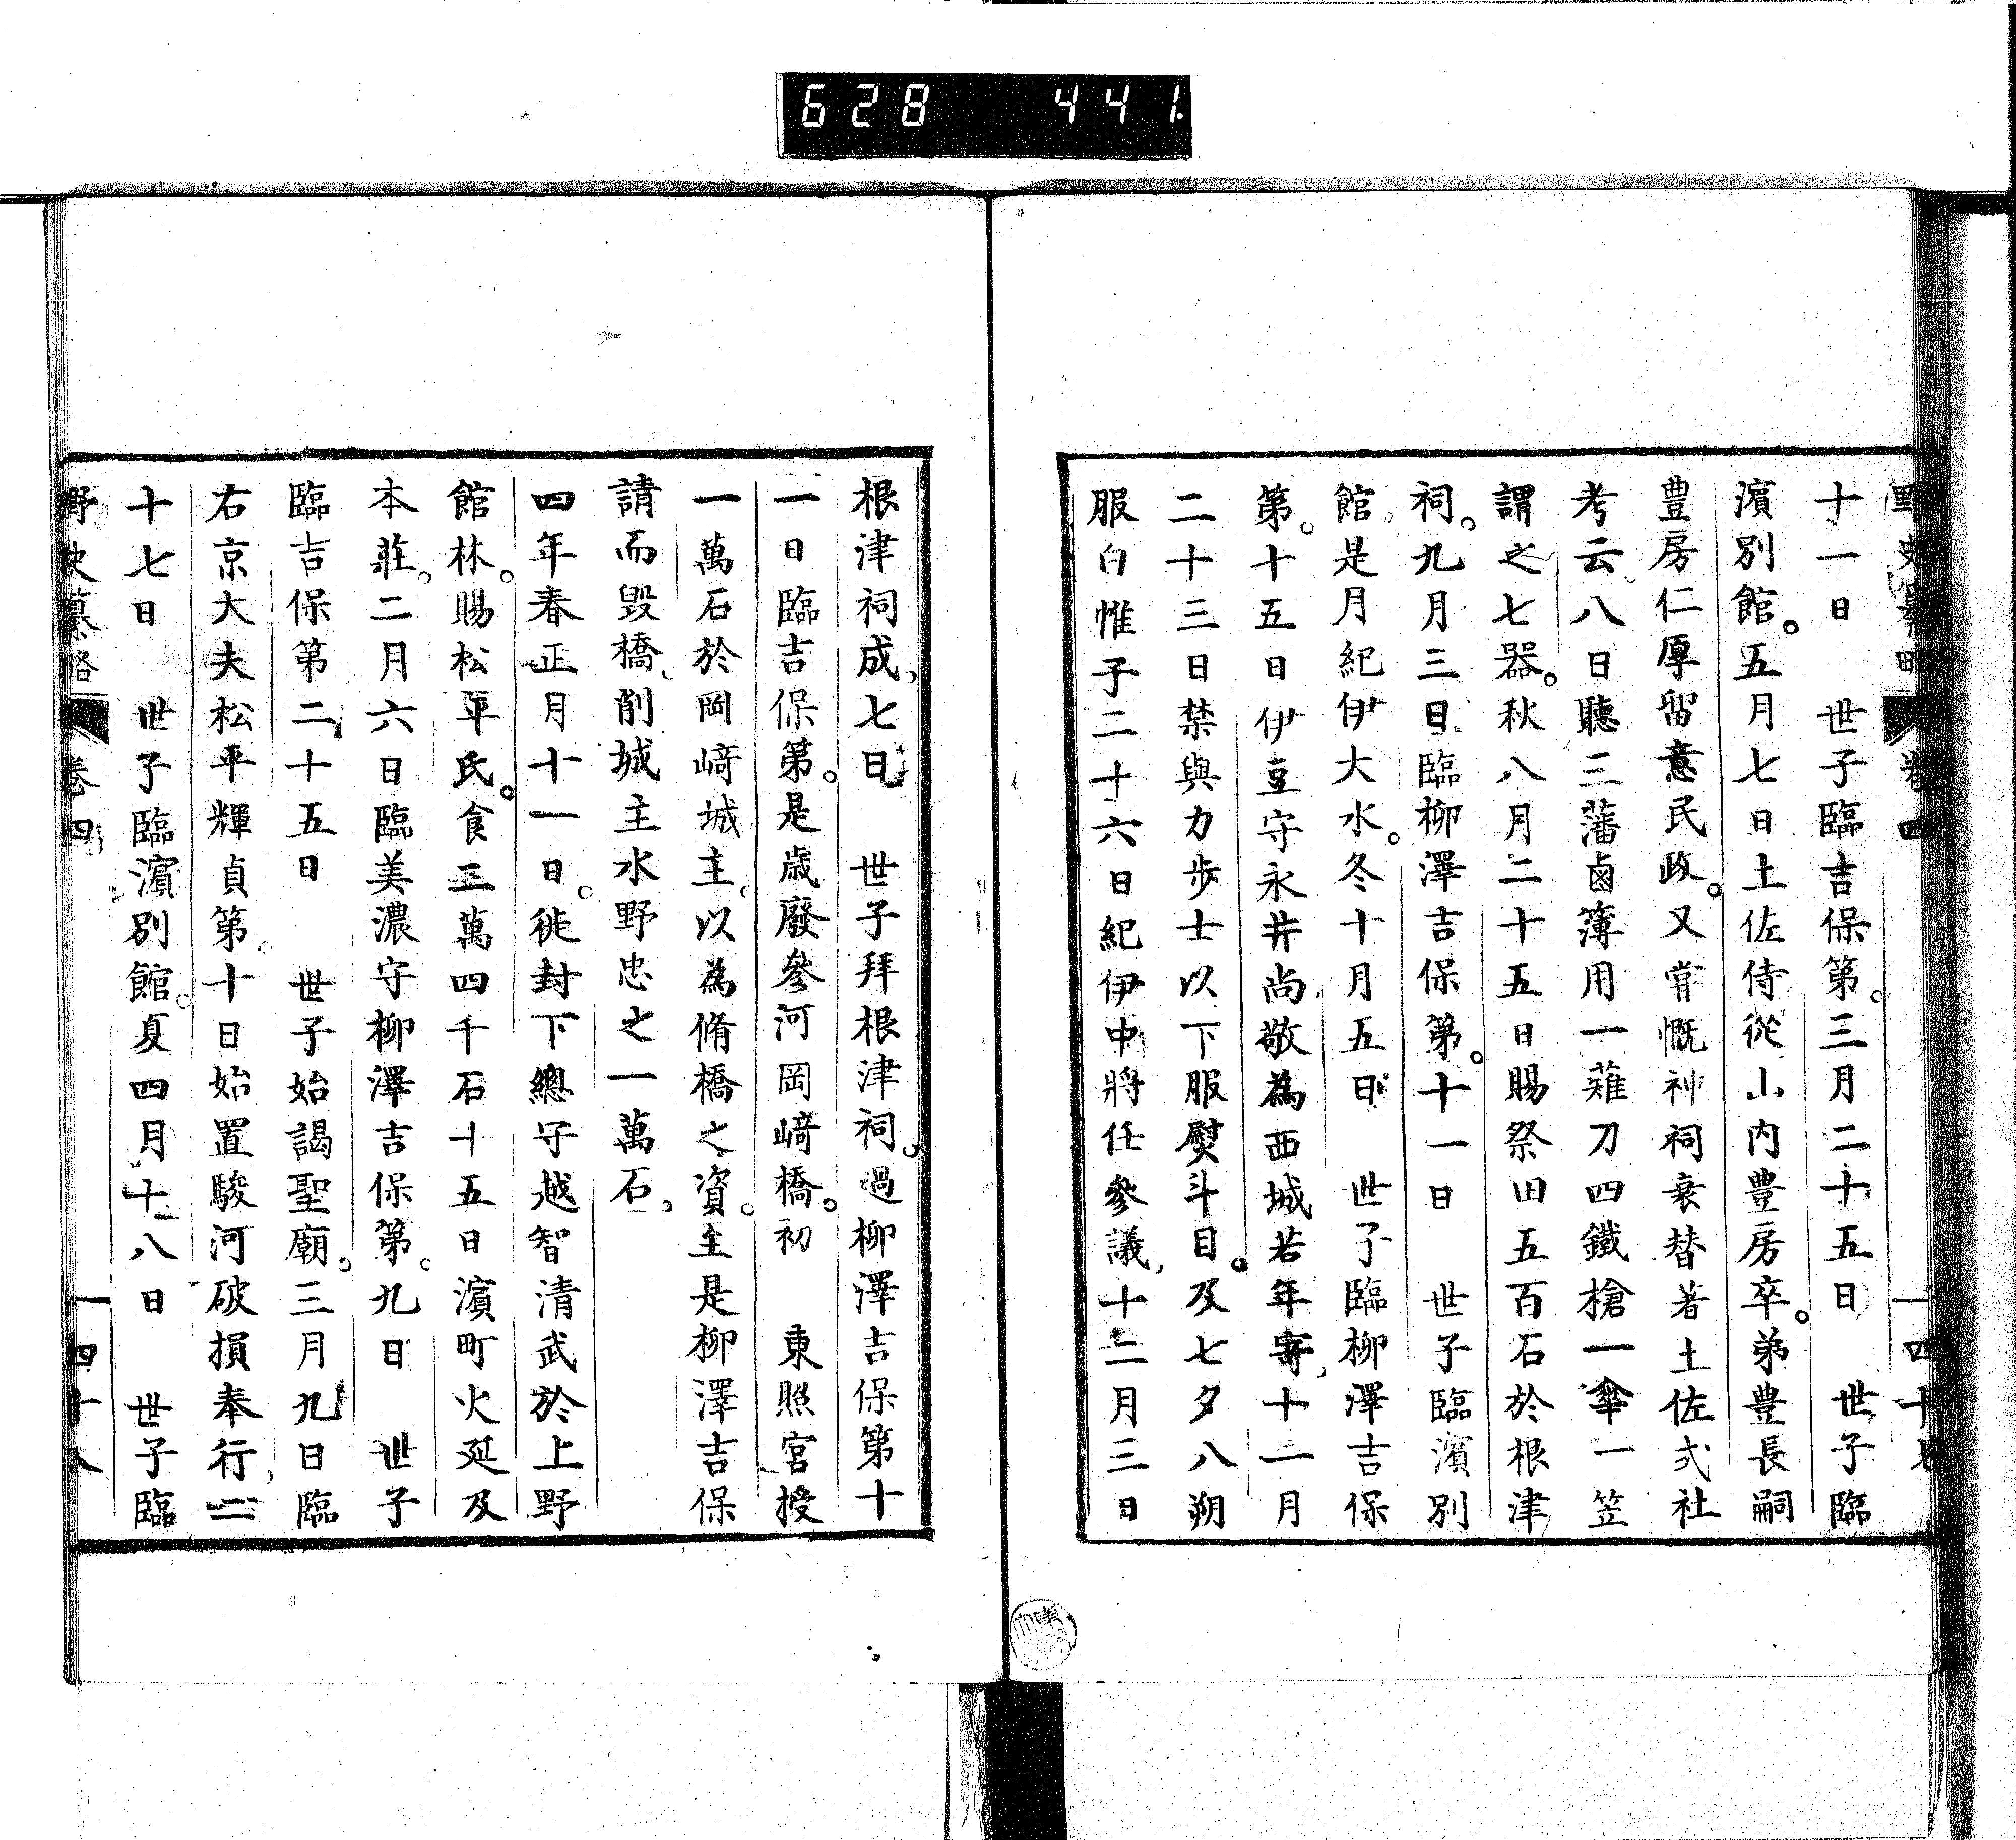 628 441
野史纂略 卷四 一四十七
十一日 世子臨吉保第。三月二十五日 世子臨
濱別館。五月七日土佐侍從山内豊房卒。弟豊長嗣
豊房仁厚留意民政。又嘗慨神祠衰替著土佐式社
考云、八日聽三藩鹵簿用一薙刀四鐵槍一傘一笠
謂之七器。秋八月二十五日賜祭田五百石於根津
祠。九月三日臨柳澤吉保第。十一日 世子臨濱別
館、是月紀伊大水。冬十月五日 世子臨柳澤吉保
第。十五日伊豆守永井尚敬為西城若年寄、十一月
二十三日禁與力歩士以下服熨斗目。及七夕八朔
服白惟子二十六日紀伊中將任參議、十二月三日
根津祠成、七日 世子拜根津祠。過柳澤吉保第十
一日臨吉保第。是歳廢參河岡﨑橋。初 東照宮授
一萬石於岡﨑城主。以為脩橋之資。至是柳澤吉保
請而毀橋、削城主水野忠之一萬石。
四年春正月十一日。徙封下總守越智清武於上野
館林。賜松平氏。食二萬四千石十五日濱町火延及
本莊。二月六日臨美濃守柳澤吉保第。九日 世子
臨吉保第二、十五日 世子始謁聖廟。三月九日臨
右京大夫松平輝貞第。十日始置駿河破損奉行、二
十七日 世子臨濱別館。夏四月十八日 世子臨
野史纂略 卷四 一四十八